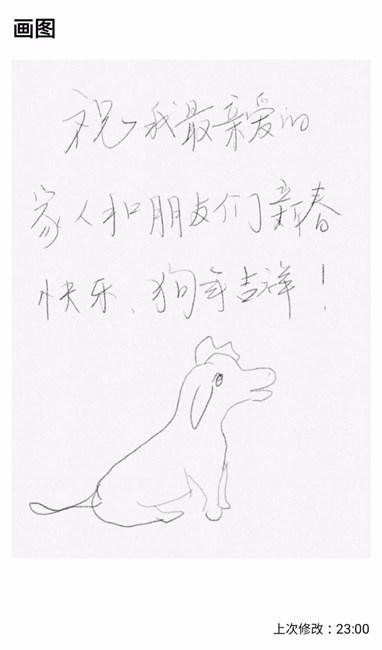 画图
祝我最亲爱的
家人和朋友们新春
快乐、狗年吉祥！
上次修改：23:00